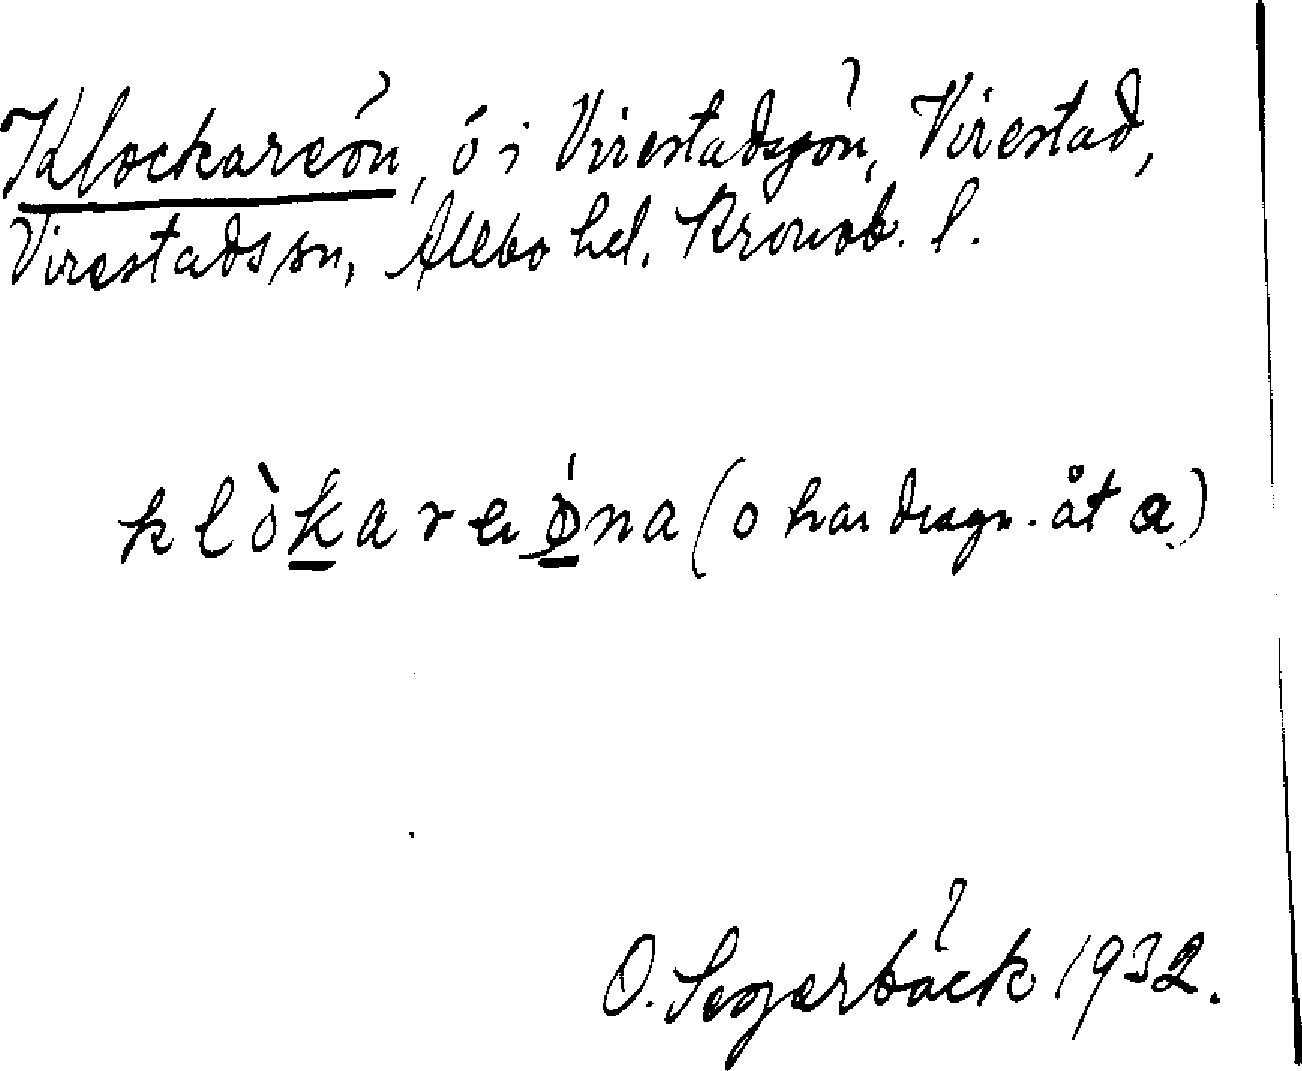 Klockareön, ö i Virestadsjön, Virestad,
Virestads sn, Allbo hd. Kronob. l.
klòkareǿna (o har dragn. åt a)
O. Segerbäck 1932.